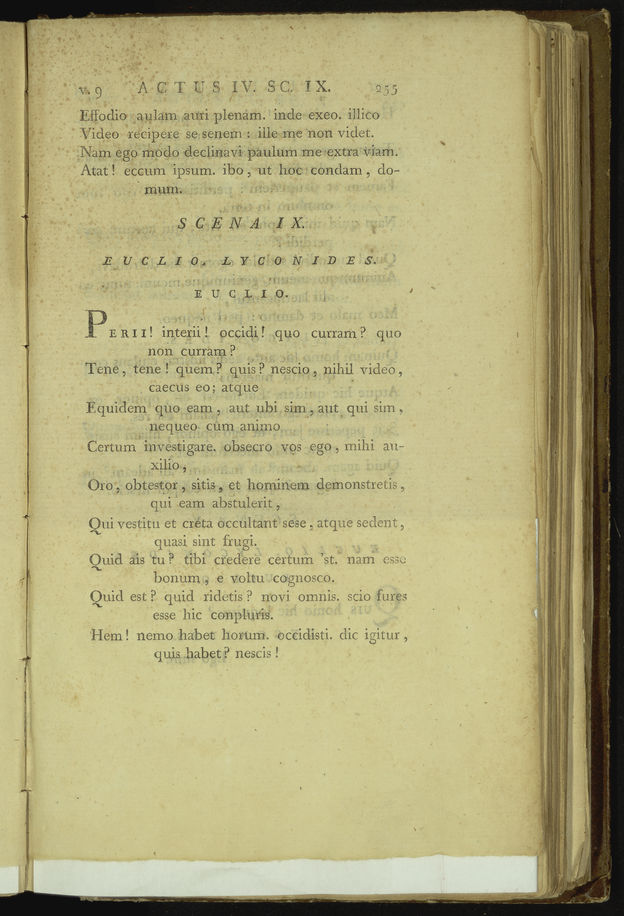 V. 9 ACTUS IV. SC. IX. 255
Effodio aulam auri plenam. inde exeo. illico
Video recipere se senem : ille me non videt.
Nam ego modo declinavi paulum me extra viam.
Atat! eccum ipsum. ibo, ut hoc condam, do-
mum.
SCENA IX.
EUCLIO. LYCONIDES.
EUCLIO.
PERII! interii! occidi! quo curram? quo
non curram?
Tene, tene! quem? quis? nescio, nihil video,
caecus eo; atque
Equidem quo eam, aut ubi sim, aut qui sim,
nequeo cum animo
Certum investigare. obsecro vos ego, mihi au-
xilio,
Oro, obtestor, sitis, et hominem demonstretis,
qui eam abstulerit,
Qui vestitu et creta occultant sese, atque sedent,
quasi sint frugi.
Quid ais tu? tibi credere certum 'st. nam esse
bonum, e voltu cognosco.
Quid est? quid ridetis? novi omnis. scio fures
esse hic conpluris.
Hem! nemo habet horum. occidisti. dic igitur,
quis habet? nescis!